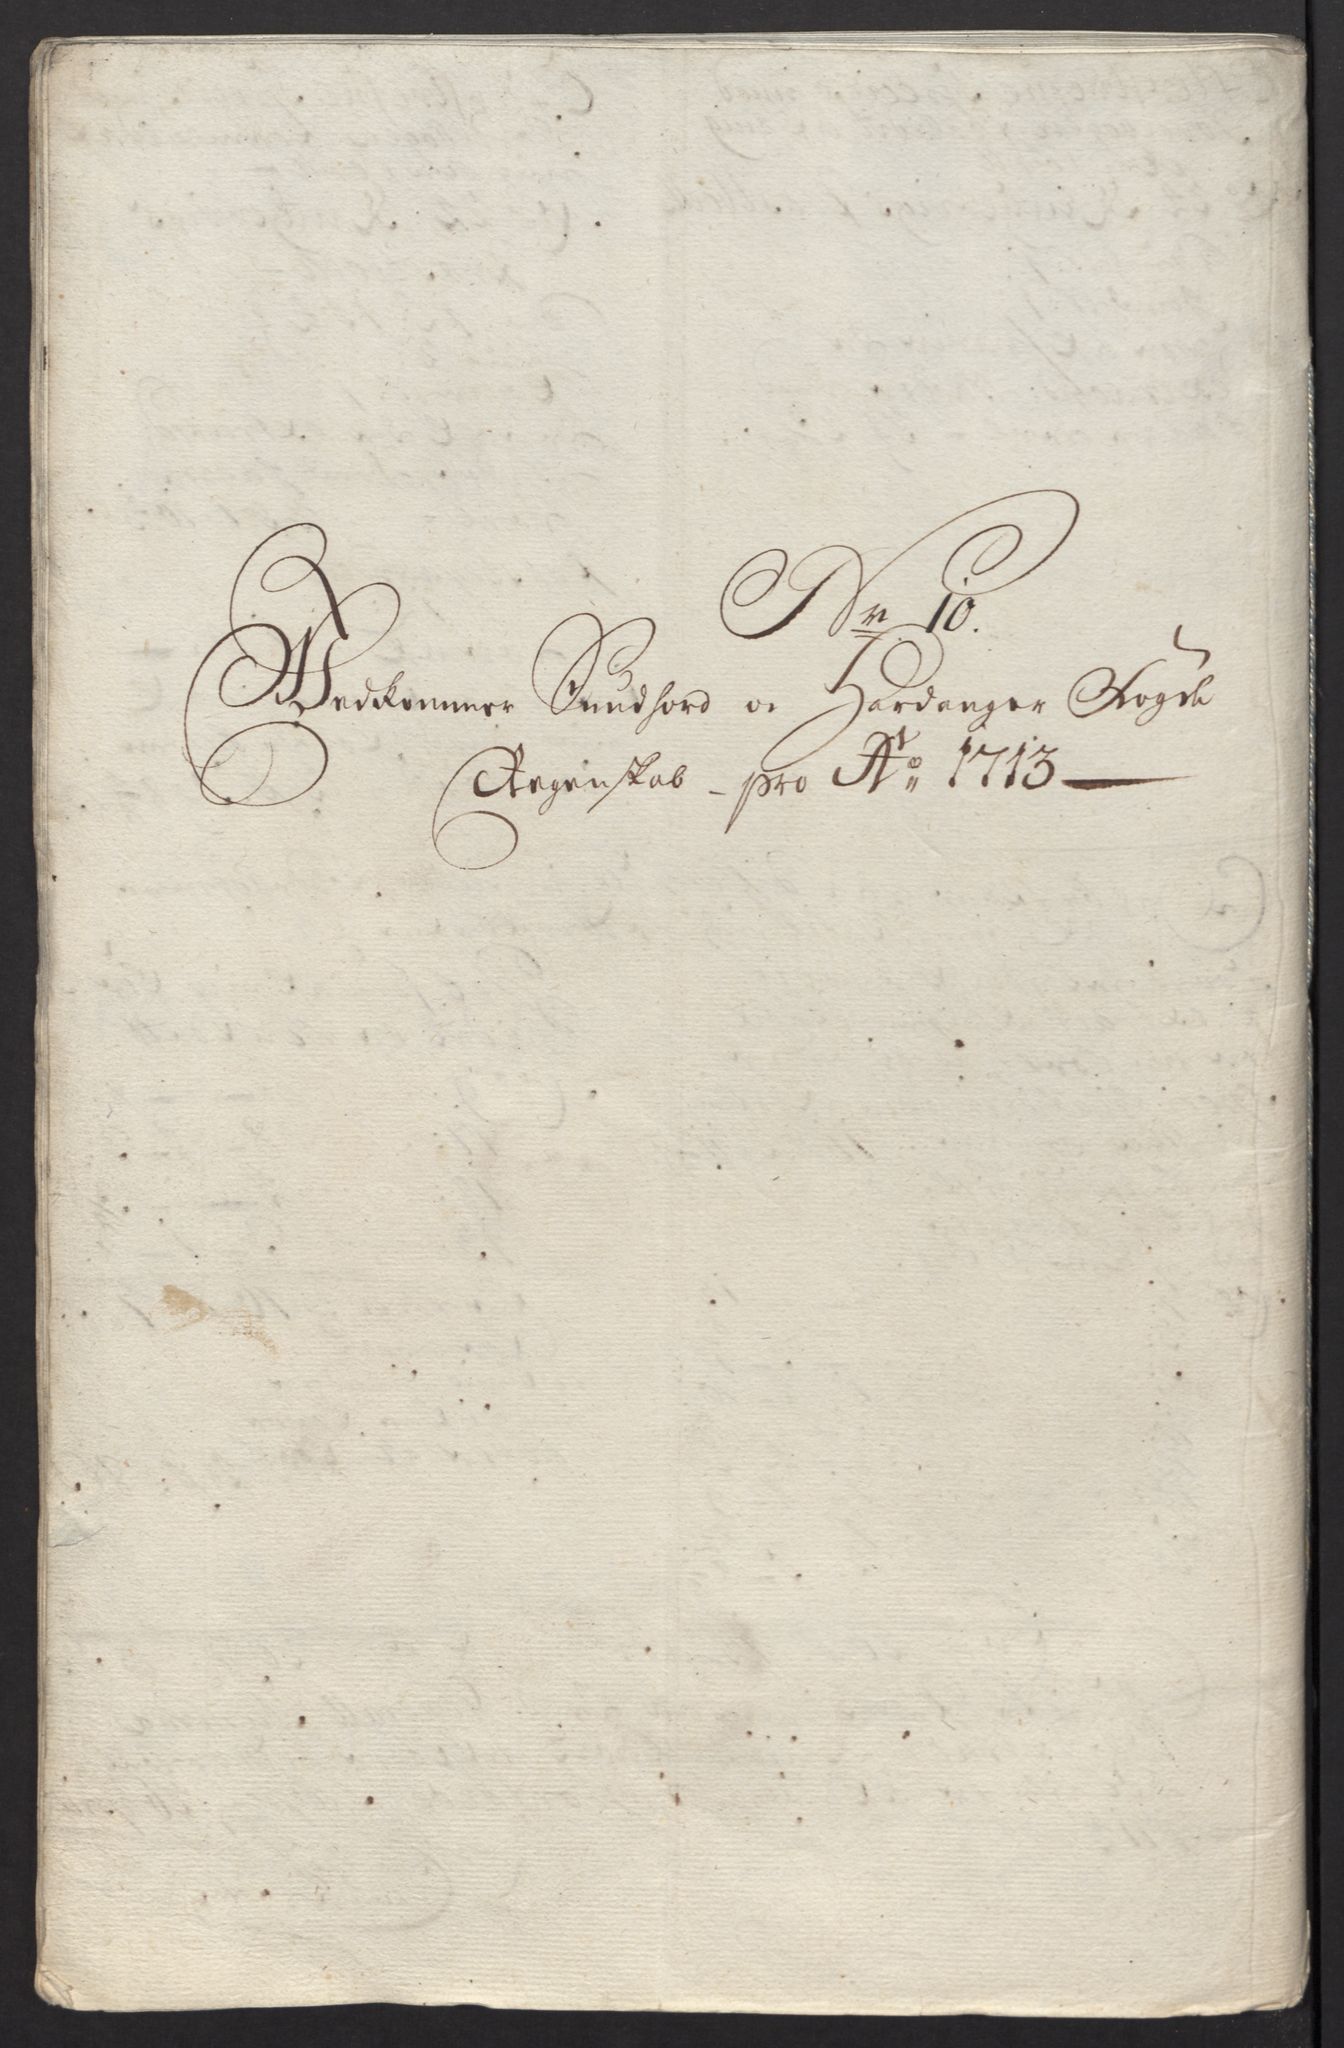 Nr 10.
Vedkommer Sundhord oc Hardanger Fogde
Regenskab - pro Ao 1713